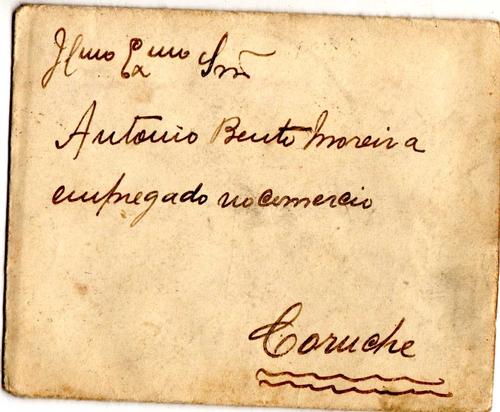 Ilmo Exmo Snr
Antonio Bento Moreira
empregado no comercio
Coruche